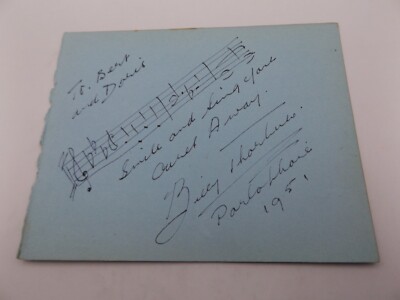 To. Bert
and Doris
Smile and Sing Your
Cares Away.
Billy Thorburn.
Parlophone
1951